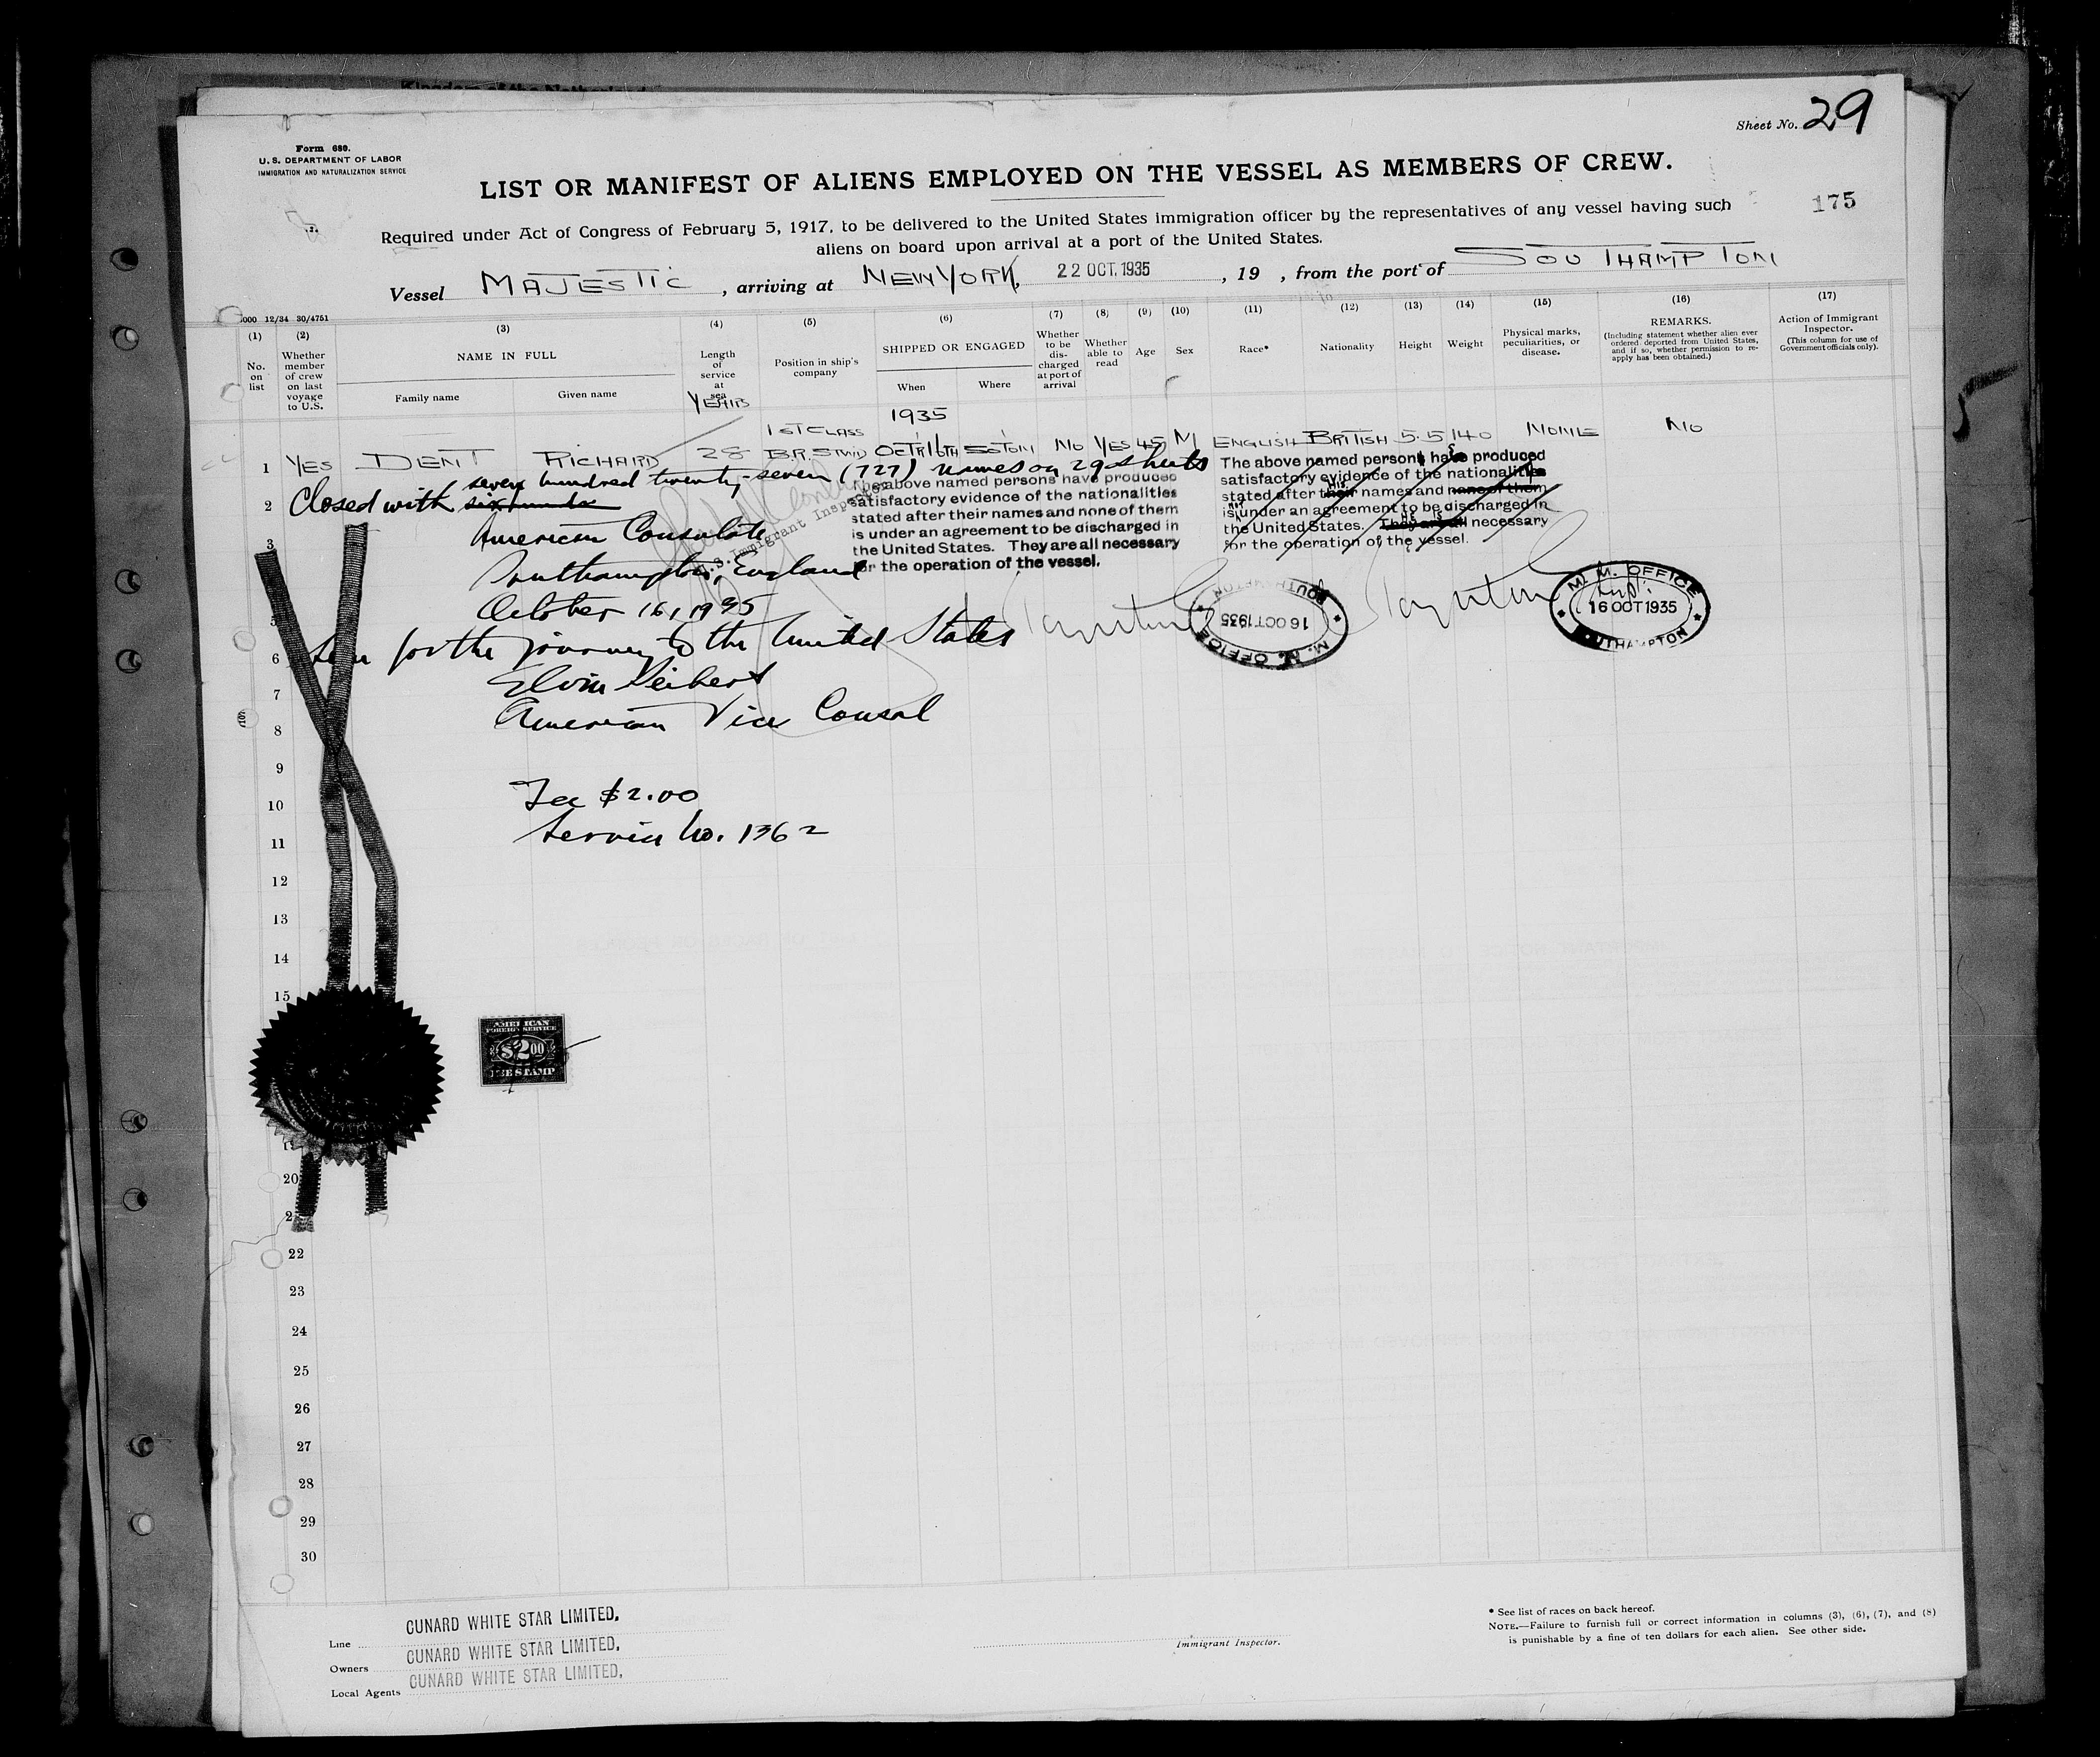 Sheet No. 29
Form 680.
U. S. DEPARTMENT OF LABOR
IMMIGRATION AND NATURALIZATION SERVICE
LIST OR MANIFEST OF ALIENS EMPLOYED ON THE VESSEL AS MEMBERS OF CREW.
175
Required under Act of Congress of February 5, 1917, to be delivered to the United States immigration officer by the representatives of any vessel having such
aliens on board upon arrival at a port of the United States.
Vessel MAJESTIC, arriving at NEW YORK, 22 OCT. 1935, 19 , from the port of SOUTHAMPTON
000 12/34 30/4751
(1) (2) (3) (4) (5) (6) (7) (8) (9) (10) (11) (12) (13) (14) (15) (16) (17)
No. on list
Whether member of crew on last voyage to U.S.
NAME IN FULL
Family name
Given name
Length of service at sea
YEARS
Position in ship's company
SHIPPED OR ENGAGED
When
Where
Whether to be discharged at port of arrival
Whether able to read
Age
Sex
Race*
Nationality
Height
Weight
Physical marks, peculiarities, or disease.
REMARKS.
(Including statement whether alien ever ordered deported from United States, and if so, whether permission to reapply has been obtained.)
Action of Immigrant Inspector.
(This column for use of Government officials only).
1935
1ST CLASS
1 YES DENT RICHARD 28 B.R. STWD OCTR 16TH SOTON NO YES 45 M ENGLISH BRITISH 5.5 140 NONE NO
seven hundred twenty-seven (727) names on 29 sheets
2 Closed with
American Consulate
Southampton, England
October 16, 1935
for the journey to the United States
Elvin Seibert
American Vice Consul
Fee $2.00
Service No. 1362
U.S. Immigrant Inspector
The above named persons have produced
satisfactory evidence of the nationalities
stated after their names and none of them
is under an agreement to be discharged in
the United States. They are all necessary
for the operation of the vessel.
The above named persons have produced
satisfactory evidence of the nationalities
stated after their names and none of them
is under an agreement to be discharged in
the United States. They are all necessary
for the operation of the vessel.
M. M. OFFICE
16 OCT 1935
SOUTHAMPTON
M. M. OFFICE
16 OCT 1935
SOUTHAMPTON
3
5
6
7
8
9
10
11
12
13
14
15
AMERICAN
FOREIGN SERVICE
$2.00
FEE STAMP
20
22
23
24
25
26
27
28
29
30
Line CUNARD WHITE STAR LIMITED.
Owners CUNARD WHITE STAR LIMITED.
Local Agents CUNARD WHITE STAR LIMITED.
Immigrant Inspector.
* See list of races on back hereof.
NOTE.—Failure to furnish full or correct information in columns (3), (6), (7), and (8)
is punishable by a fine of ten dollars for each alien. See other side.